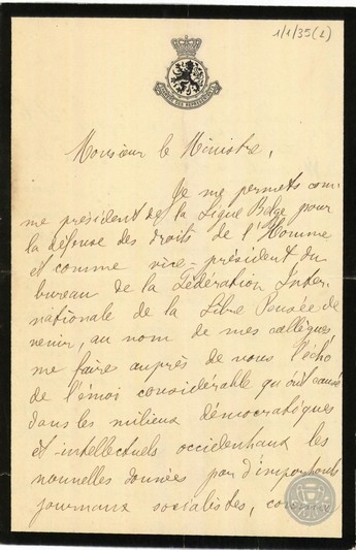 1/1/35(2)
CHAMBRE DES REPRÉSENTANTS
Monsieur le Ministre,
Je me permets com-
me président de la Ligue Belge pour
la défense des droits de l'Homme
et comme vice-président du
bureau de la Fédération Inter-
nationale de la Libre Pensée de
venir, au nom de mes collègues
me faire auprès de vous l'écho
de l'émoi considérable qu'ont causé
dans les milieux démocratiques
et intellectuels occidentaux les
nouvelles données par d'importants
journaux socialistes,